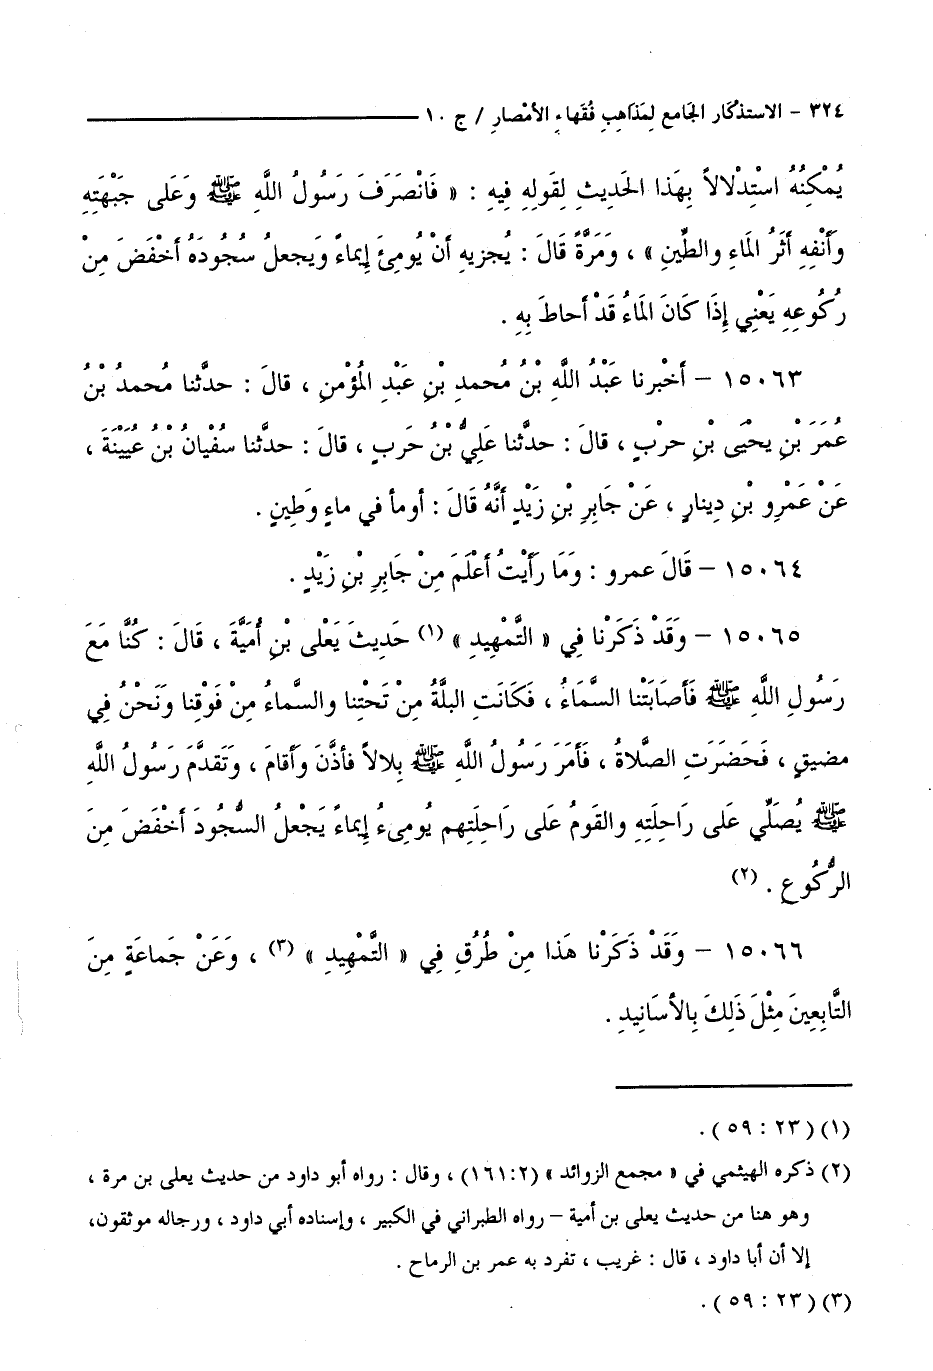 ٣٢٤ - الاستذكَار الجَامع لِمَذاهِبِ فُقَهاءِ الأمْصارِ / ج ١٠
يُمْكِنُهُ اسْتِدْلالاً بِهَذا الحَديثِ لِقَولِهِ فِيهِ : « فَانْصَرَفَ رَسُولُ اللَّهِ ﷺ وَعَلى جَبْهَتِهِ
وأَنْفِهِ أَثَرُ المَاءِ والطِّينِ » ، وَمَرَّةً قَالَ : يُجزيهِ أَنْ يُومِئَ إِيماءً وَيَجعلُ سُجُودَهُ أخْفَضَ مِنْ
رُكُوعِهِ يَعْنِي إِذَا كَانَ المَاءُ قَدْ أحاطَ بِهِ .
١٥٠٦٣ - أَخْبرنا عَبْدُ اللَّهِ بْنُ مُحمدِ بْنِ عَبْدِ المُؤْمنِ ، قالَ : حدَّثنا مُحمدُ بْنُ
عُمَرَ بْنِ يحْيَى بْنِ حرْبٍ ، قالَ : حدَّثنا عَلِيُّ بْنُ حَربٍ ، قالَ : حدَّثنا سفْيانُ بْنُ عُيَيْنَةَ ،
عَنْ عَمْرِو بْنِ دِينارٍ ، عَنْ جَابِرِ بْنِ زَيْدٍ أَنَّهُ قَالَ : أومأ في ماءٍ وَطِينٍ .
١٥٠٦٤ - قَالَ عمرو : وَمَا رَأَيْتُ أَعْلَمَ مِنْ جَابِرِ بْنِ زَيْدٍ .
١٥٠٦٥ - وَقَدْ ذَكَرْنا فِي « التَّمْهِيدِ » (١) حَدِيثَ يَعْلى بْنِ أُمَيَّةَ ، قَالَ : كُنَّا مَعَ
رَسُولِ اللَّهِ ﷺ فَأَصَابَتْنا السَّمَاءُ ، فَكَانَتِ البلَّةُ مِنْ تَحْتِنا والسَّماءُ مِنْ فَوْقِنا وَنَحْنُ فِي
مضيقٍ ، فَحَضَرَتِ الصَّلاةُ ، فَأَمَرَ رَسُولُ اللَّهِ ﷺ بِلالاً فأذَّنَ وَأَقامَ ، وَتَقدَّمَ رَسُولُ اللَّهِ
ﷺ يُصَلِّي عَلَى رَاحِلَتِهِ والقَومُ عَلَى رَاحِلَتِهم يُومِىءُ إِيماءً يَجْعلُ السُّجُودَ أخْفَضَ مِنَ
الرُّكُوعِ . (٢)
١٥٠٦٦ - وَقَدْ ذَكَرْنا هَذا مِنْ طُرُقٍ فِي « التَّمْهِيدِ » (٣) ، وَعَنْ جَماعَةٍ مِنَ
التَّابِعِينَ مِثْلَ ذَلِكَ بِالأسَانِيدِ .
(١) (٢٣ : ٥٩) .
(٢) ذكره الهيثمي في « مجمع الزوائد » (٢:١٦١) ، وقال : رواه أبو داود من حديث يعلى بن مرة ،
وهو هنا من حديث يعلى بن أمية - رواه الطبراني في الكبير ، وإسناده أبي داود ، ورجاله موثقون،
إلا أن أبا داود ، قال : غريب ، تفرد به عمر بن الرماح .
(٣) (٢٣ : ٥٩) .